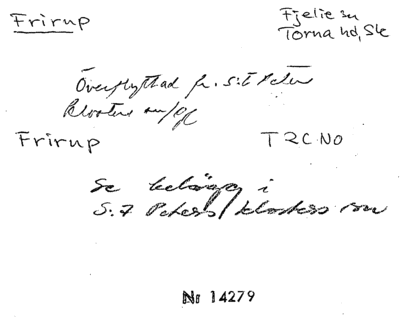 Frirup
Fjelie sn
Torna hd, Sk
Överflyttad fr. S:t Peters
klosters sn/gl
Frirup
T2C NO
Se belägg i
S:t Peters klosters sn
Nr 14279